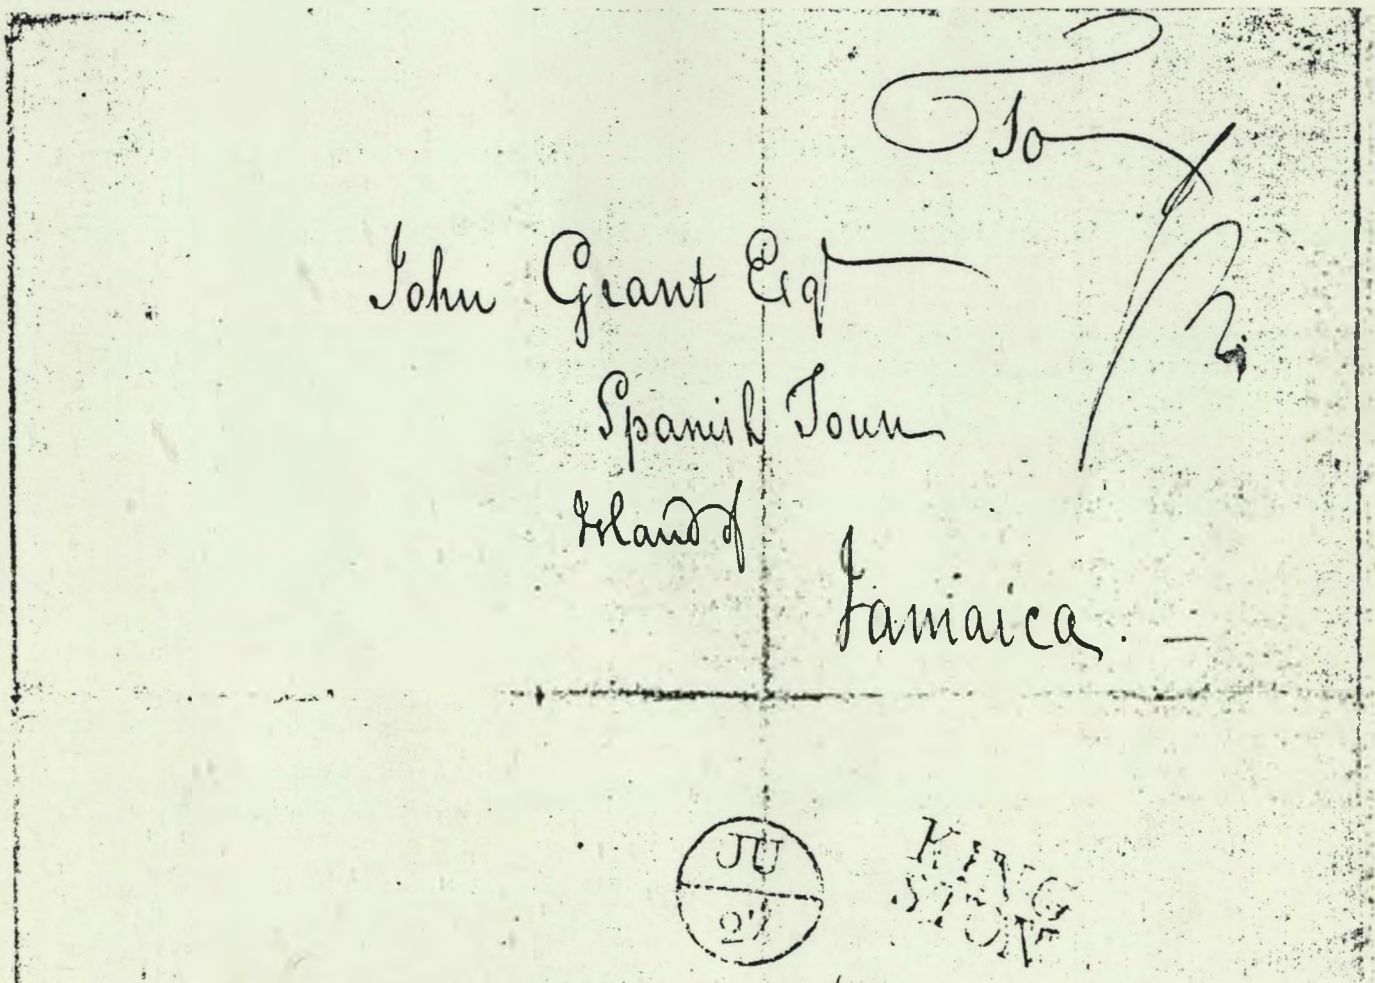 To
John Grant Esqr
Spanish Town
Island of
Jamaica. —
JU
27
KING
STON